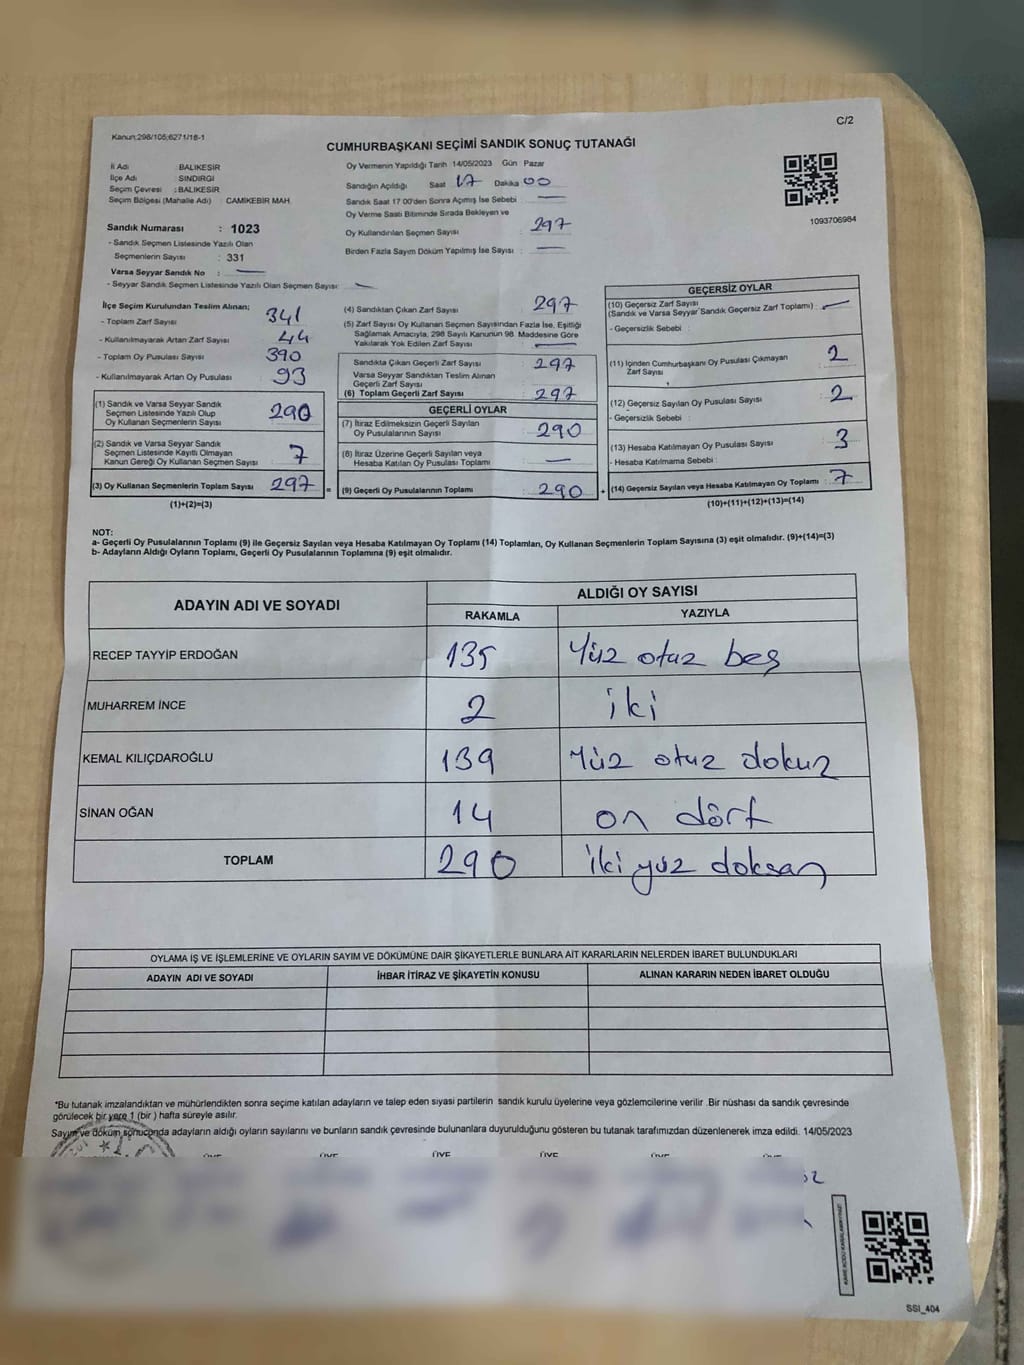 Kanun:298/105;6271/16-1
C/2
CUMHURBAŞKANI SEÇİMİ SANDIK SONUÇ TUTANAĞI
İl Adı : BALIKESİR
İlçe Adı : SINDIRGI
Seçim Çevresi : BALIKESİR
Seçim Bölgesi (Mahalle Adı) : CAMİKEBİR MAH.
Sandık Numarası : 1023
- Sandık Seçmen Listesinde Yazılı Olan
Seçmenlerin Sayısı : 331
Varsa Seyyar Sandık No : —
- Seyyar Sandık Seçmen Listesinde Yazılı Olan Seçmen Sayısı: —
Oy Vermenin Yapıldığı Tarih 14/05/2023 Gün Pazar
Sandığın Açıldığı Saat 17 Dakika 00
Sandık Saat 17:00'den Sonra Açımış İse Sebebi : —
Oy Verme Saati Bitiminde Sırada Bekleyen ve
Oy Kullandırılan Seçmen Sayısı : 297
Birden Fazla Sayım Döküm Yapılmış İse Sayısı : —
1093706984
İlçe Seçim Kurulundan Teslim Alınan;
- Toplam Zarf Sayısı : 341
- Kullanılmayarak Artan Zarf Sayısı : 44
- Toplam Oy Pusulası Sayısı : 390
- Kullanılmayarak Artan Oy Pusulası : 93
(1) Sandık ve Varsa Seyyar Sandık
Seçmen Listesinde Yazılı Olup
Oy Kullanan Seçmenlerin Sayısı : 290
(2) Sandık ve Varsa Seyyar Sandık
Seçmen Listesinde Kayıtlı Olmayan
Kanun Gereği Oy Kullanan Seçmen Sayısı : 7
(3) Oy Kullanan Seçmenlerin Toplam Sayısı : 297
(1)+(2)=(3)
(4) Sandıktan Çıkan Zarf Sayısı : 297
(5) Zarf Sayısı Oy Kullanan Seçmen Sayısından Fazla İse, Eşitliği
Sağlamak Amacıyla, 298 Sayılı Kanunun 98. Maddesine Göre
Yakılarak Yok Edilen Zarf Sayısı : —
Sandıkta Çıkan Geçerli Zarf Sayısı : 297
Varsa Seyyar Sandıktan Teslim Alınan
Geçerli Zarf Sayısı :
(6) Toplam Geçerli Zarf Sayısı : 297
GEÇERLİ OYLAR
(7) İtiraz Edilmeksizin Geçerli Sayılan
Oy Pusulalarının Sayısı : 290
(8) İtiraz Üzerine Geçerli Sayılan veya
Hesaba Katılan Oy Pusulası Toplamı : —
= (9) Geçerli Oy Pusulalarının Toplamı : 290
GEÇERSİZ OYLAR
(10) Geçersiz Zarf Sayısı
(Sandık ve Varsa Seyyar Sandık Geçersiz Zarf Toplamı) : —
- Geçersizlik Sebebi :
(11) İçinden Cumhurbaşkanı Oy Pusulası Çıkmayan
Zarf Sayısı : 2
(12) Geçersiz Sayılan Oy Pusulası Sayısı : 2
- Geçersizlik Sebebi :
(13) Hesaba Katılmayan Oy Pusulası Sayısı : 3
- Hesaba Katılmama Sebebi :
+ (14) Geçersiz Sayılan veya Hesaba Katılmayan Oy Toplamı : 7
(10)+(11)+(12)+(13)=(14)
NOT:
a- Geçerli Oy Pusulalarının Toplamı (9) ile Geçersiz Sayılan veya Hesaba Katılmayan Oy Toplamı (14) Toplamları, Oy Kullanan Seçmenlerin Toplam Sayısına (3) eşit olmalıdır. (9)+(14)=(3)
b- Adayların Aldığı Oyların Toplamı, Geçerli Oy Pusulalarının Toplamına (9) eşit olmalıdır.
ADAYIN ADI VE SOYADI
ALDIĞI OY SAYISI
RAKAMLA YAZIYLA
RECEP TAYYİP ERDOĞAN 135 Yüz otuz beş
MUHARREM İNCE 2 iki
KEMAL KILIÇDAROĞLU 139 Yüz otuz dokuz
SİNAN OĞAN 14 on dört
TOPLAM 290 iki yüz doksan
OYLAMA İŞ VE İŞLEMLERİNE VE OYLARIN SAYIM VE DÖKÜMÜNE DAİR ŞİKAYETLERLE BUNLARA AİT KARARLARIN NELERDEN İBARET BULUNDUKLARI
ADAYIN ADI VE SOYADI İHBAR İTİRAZ VE ŞİKAYETİN KONUSU ALINAN KARARIN NEDEN İBARET OLDUĞU
*Bu tutanak imzalandıktan ve mühürlendikten sonra seçime katılan adayların ve talep eden siyasi partilerin sandık kurulu üyelerine veya gözlemcilerine verilir .Bir nüshası da sandık çevresinde
görülecek bir yere 1 (bir ) hafta süreyle asılır.
Sayım ve döküm sonucunda adayların aldığı oyların sayılarını ve bunların sandık çevresinde bulunanlara duyurulduğunu gösteren bu tutanak tarafımızdan düzenlenerek imza edildi. 14/05/2023
ÜYE ÜYE ÜYE ÜYE ÜYE ÜYE
KARE KODU KARALAMAYINIZ!
SSİ_404